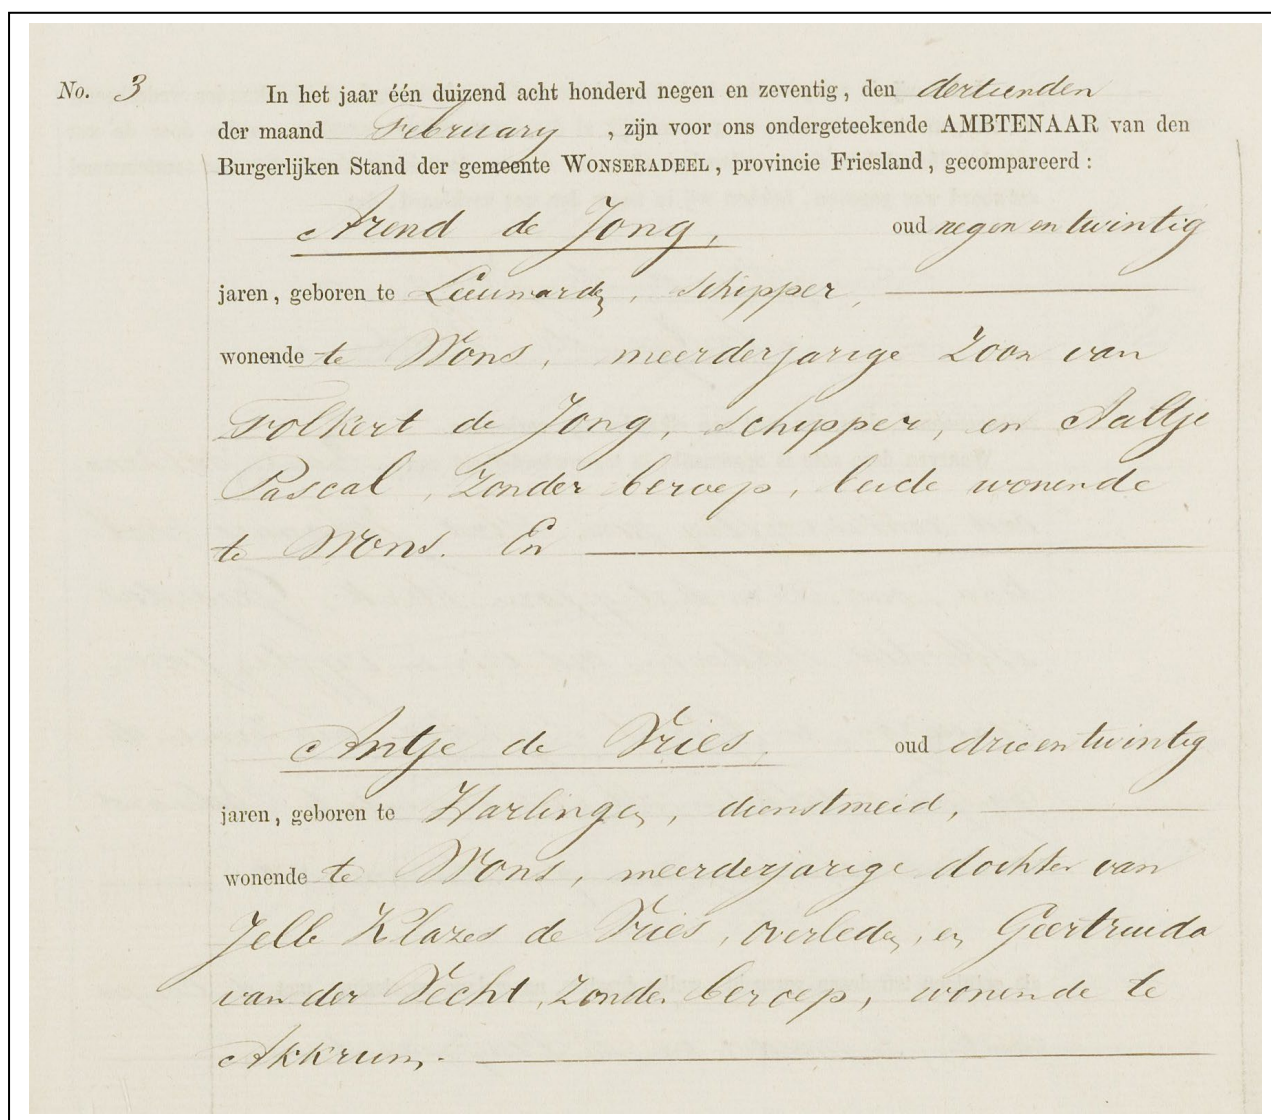 No. 3 In het jaar één duizend acht honderd negen en zeventig, den dertienden
der maand February, zijn voor ons ondergeteekende AMBTENAAR van den
Burgerlijken Stand der gemeente WONSERADEEL, provincie Friesland, gecompareerd:
Arend de Jong, oud negen en twintig
jaren, geboren te Leeuwarden, schipper,
wonende te Wons, meerderjarige zoon van
Folkert de Jong, schipper, en Aaltje
Pascal, zonder beroep, beide wonende
te Wons. En
Antje de Vries, oud drie en twintig
jaren, geboren te Harlingen, dienstmeid,
wonende te Wons, meerderjarige dochter van
Jelle Klazes de Vries, overleden, en Geertruida
van der Vecht, zonder beroep, wonende te
Akkrum.